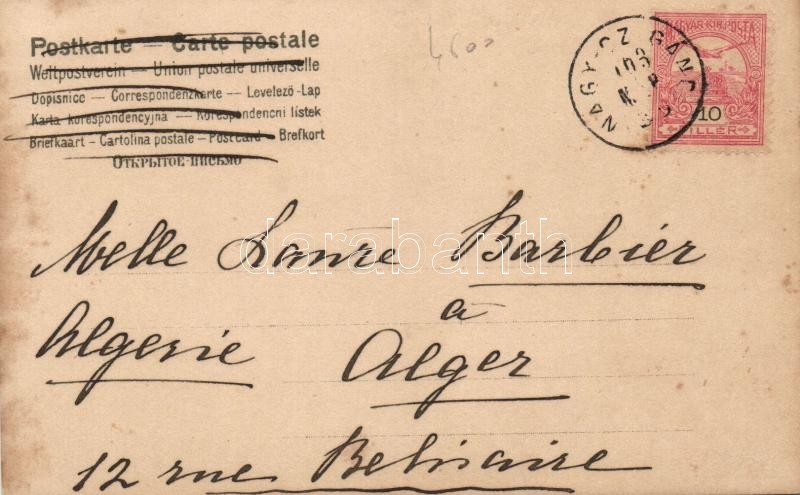 Postkarte — Carte postale
Weltpostverein — Union postale universelle
Dopisnice — Correspondenzkarte — Levelező-Lap
Karta korespondencyjna — Korespondencni lístek
Briefkaart — Cartolina postale — Postcard — Brefkort
Открытое письмо
4600
MAGYAR KIR. POSTA
10
FILLÉR
NAGY
Melle Laure Barbier
à
Algerie Alger
12 rue Belisaire
darabanth